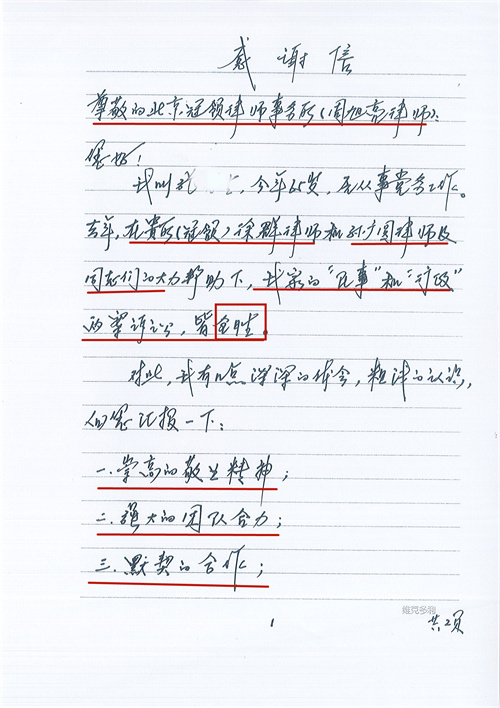 感谢信
尊敬的北京冠领律师事务所(周旭亮律师):
您好!
我叫 ,今年65岁,曾从事党务工作。
去年,在贵所(冠领)徐群律师和孙广圆律师及
同志们的大力帮助下,我家的“民事”和“行政”
两案诉讼,皆全胜。
对此,我有几点深深的体会,粗浅的认识,
向您汇报一下:
一.崇高的敬业精神;
二.强大的团队合力;
三.默契的合作;
1
共2页